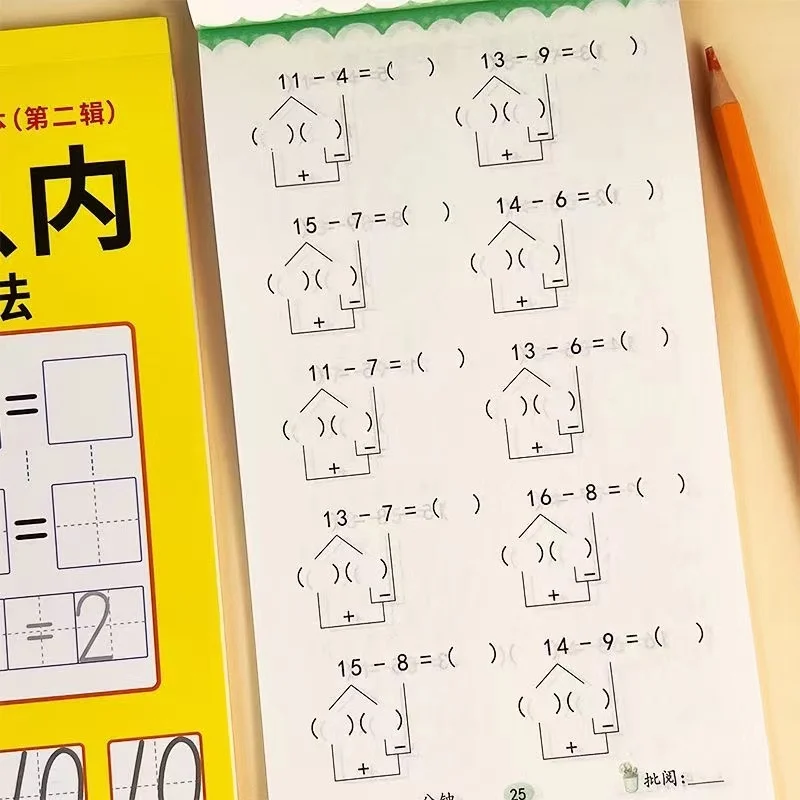 本(第二辑)
以内
法
=
=
= 2
10 10
11 - 4 = (  )  13 - 9 = (  )
(  )(  )  (  )(  )
-  -
+  +
15 - 7 = (  )  14 - 6 = (  )
(  )(  )  (  )(  )
-  -
+  +
11 - 7 = (  )  13 - 6 = (  )
(  )(  )  (  )(  )
-  -
+  +
13 - 7 = (  )  16 - 8 = (  )
(  )(  )  (  )(  )
-  -
+  +
15 - 8 = (  )  14 - 9 = (  )
(  )(  )  (  )(  )
-  -
+  +
分钟  25  批阅:____